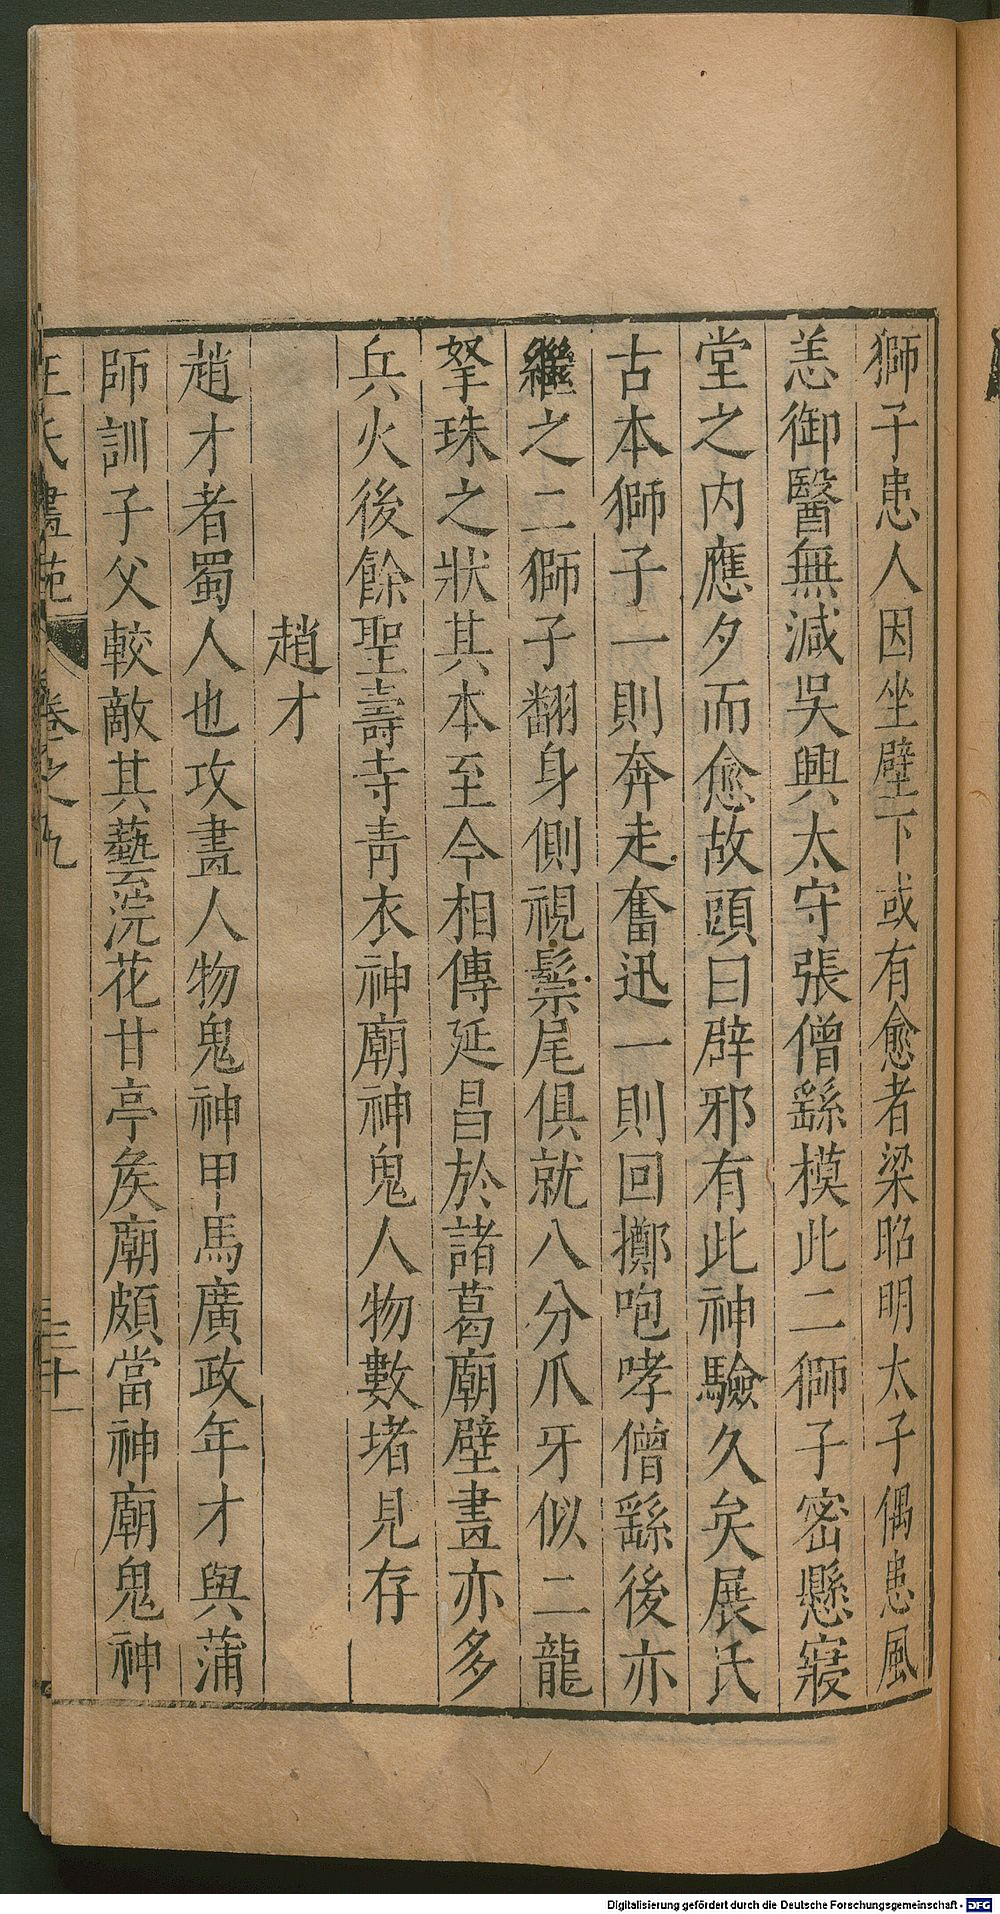 獅子患人因坐壁下或有愈者梁昭明太子偶患風
恙御醫無減吳興太守張僧繇模此二獅子密懸寢
堂之內應夕而愈故頭曰辟邪有此神驗久矣展氏
古本獅子一則奔走奮迅一則回擲咆哮僧繇後亦
繼之二獅子翻身側視鬃尾俱就八分爪牙似二龍
拏珠之狀其本至今相傳延昌於諸葛廟壁畫亦多
兵火後餘聖壽寺青衣神廟神鬼人物數堵見存
趙才
趙才者蜀人也攻畫人物鬼神甲馬廣政年才與蒲
師訓子父較敵其藝浣花甘亭矦廟頗當神廟鬼神
王氏畫苑 卷之九 三十一
Digitalisierung gefördert durch die Deutsche Forschungsgemeinschaft - DFG